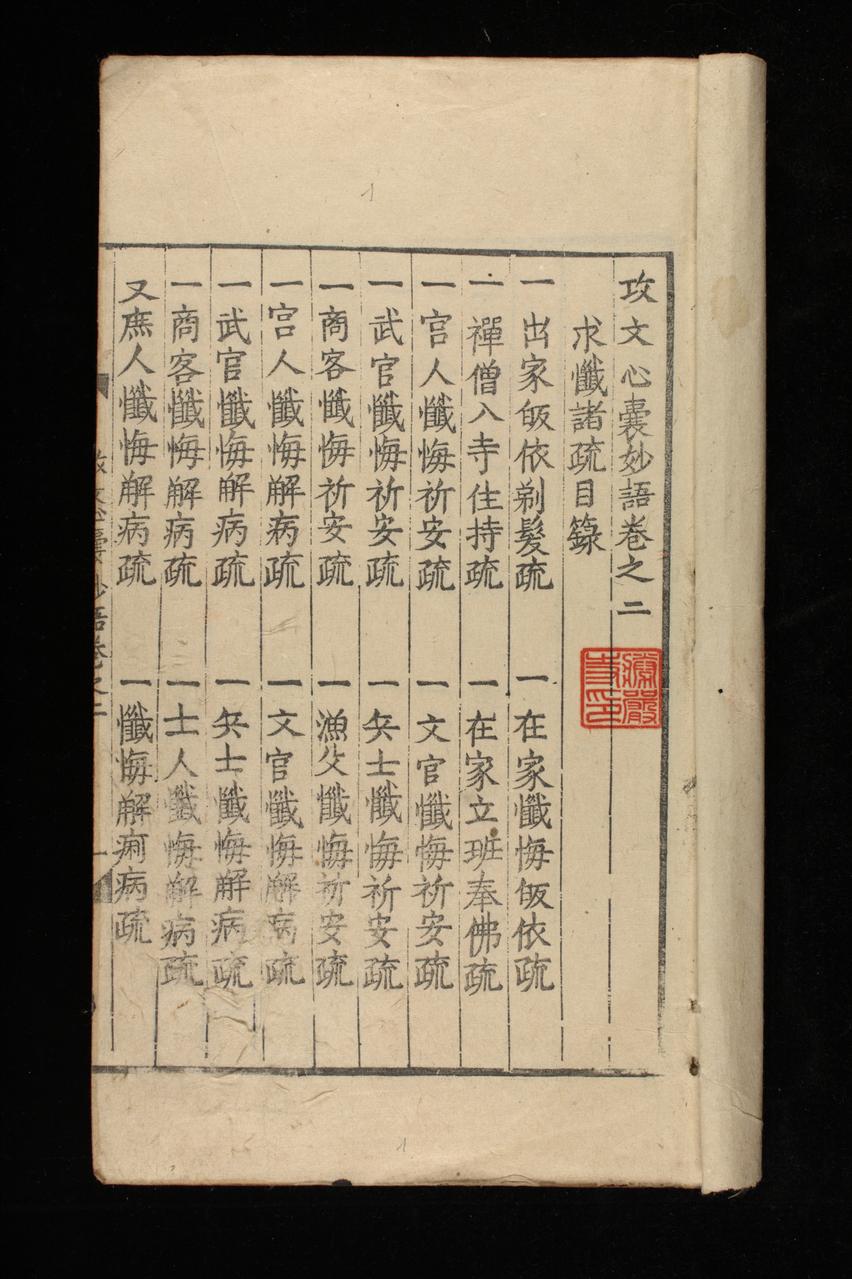 攻文心囊妙語卷之二
求懺諸疏目錄
一出家皈依剃髮疏 一在家懺悔皈依疏
一禪僧入寺住持疏 一在家立班奉佛疏
一宫人懺悔祈安疏 一文官懺悔祈安疏
一武官懺悔祈安疏 一兵士懺悔祈安疏
一商客懺悔祈安疏 一漁父懺悔祈安疏
一宫人懺悔解病疏 一文官懺悔解病疏
一武官懺悔解病疏 一兵士懺悔解病疏
一商客懺悔解病疏 一士人懺悔解病疏
又庶人懺悔解病疏 一懺悔解痢病疏
攻文心囊妙語卷之二
一
1
1